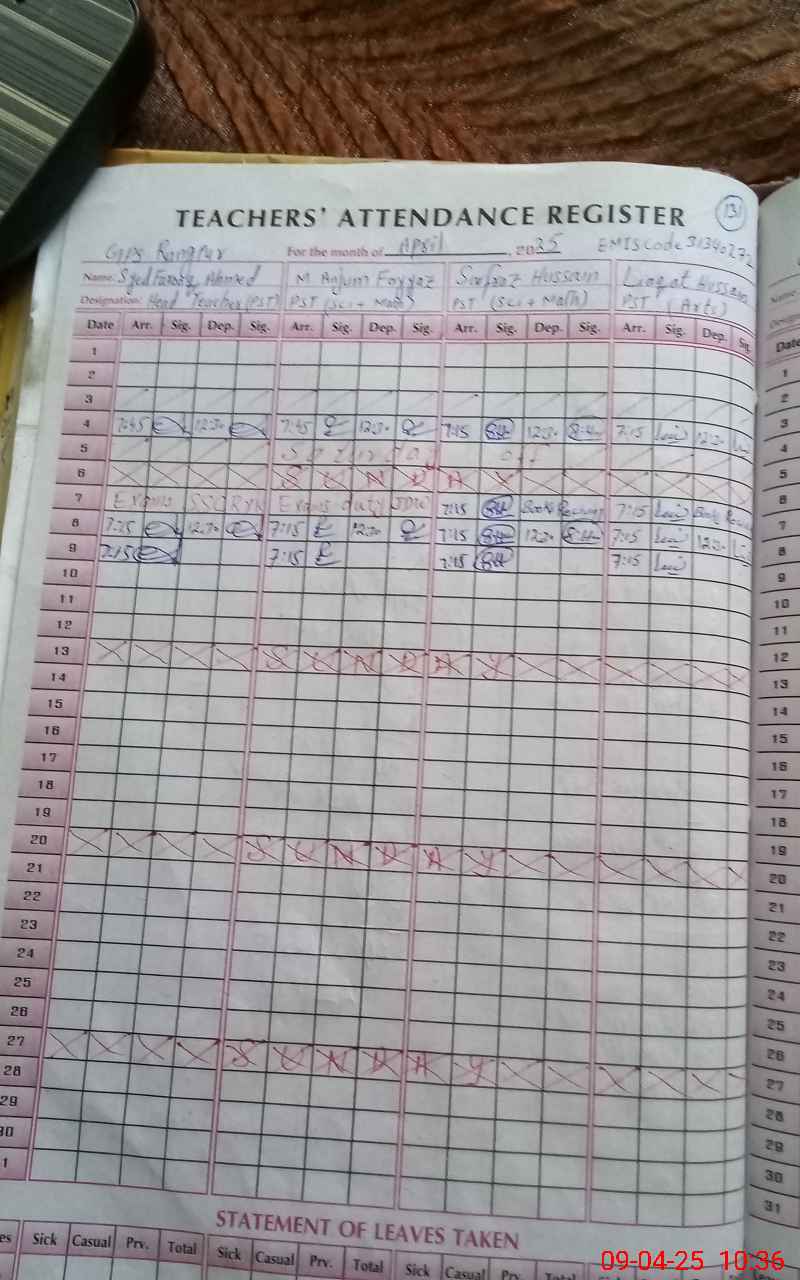 TEACHERS' ATTENDANCE REGISTER 131
GPS Rangpur For the month of April, 2025 EMIS Code 31340272
Name: Syed Farooq Ahmed M Anjum Fayyaz Sarfraz Hussain Liaqat Hussain
Designation: Head Teacher (PST) PST (Sci + Math) PST (Sci + Math) PST (Arts)
Date Arr. Sig. Dep. Sig. Arr. Sig. Dep. Sig. Arr. Sig. Dep. Sig. Arr. Sig. Dep. Sig.
1
2
3
4 7:45 12:30 7:45 12:30 7:15 12:30 7:15 12:30
5 Saturday off
6 SUNDAY
7 Exams SSC RYK Exams duty 7:15 Books 7:15 Books
8 7:15 12:30 7:15 12:30 7:15 12:30 7:15 12:30
9 7:15 7:15 7:15 7:15
10
11
12
13 SUNDAY
14
15
16
17
18
19
20 SUNDAY
21
22
23
24
25
26
27 SUNDAY
28
29
30
1
STATEMENT OF LEAVES TAKEN
es Sick Casual Prv. Total Sick Casual Prv. Total Sick Casual Prv. Total
Name
Date
1
2
3
4
5
6
7
8
9
10
11
12
13
14
15
16
17
18
19
20
21
22
23
24
25
26
27
28
29
30
31
09-04-25 10:36